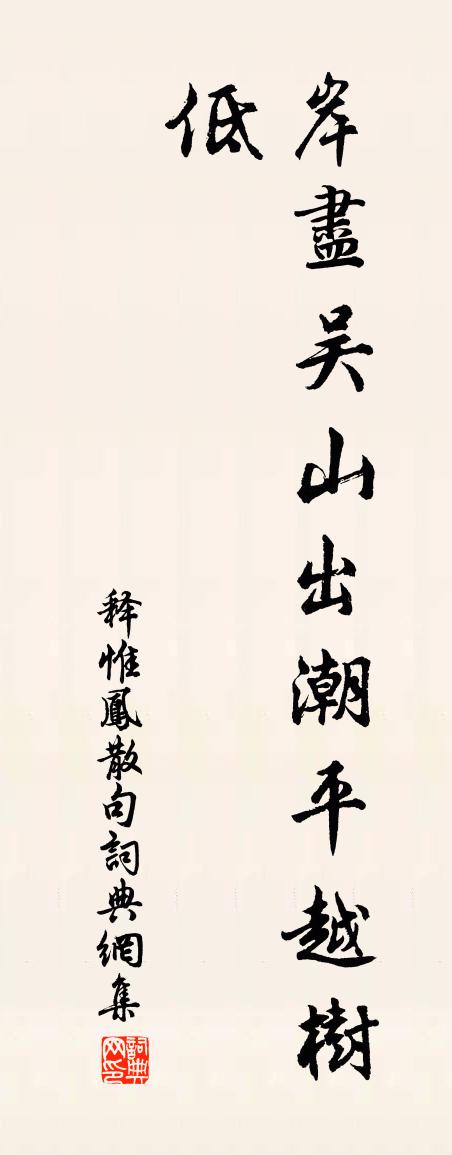 岸盡吴山出潮平越樹
低
释惟鳳散句詞典網集
詞典网印